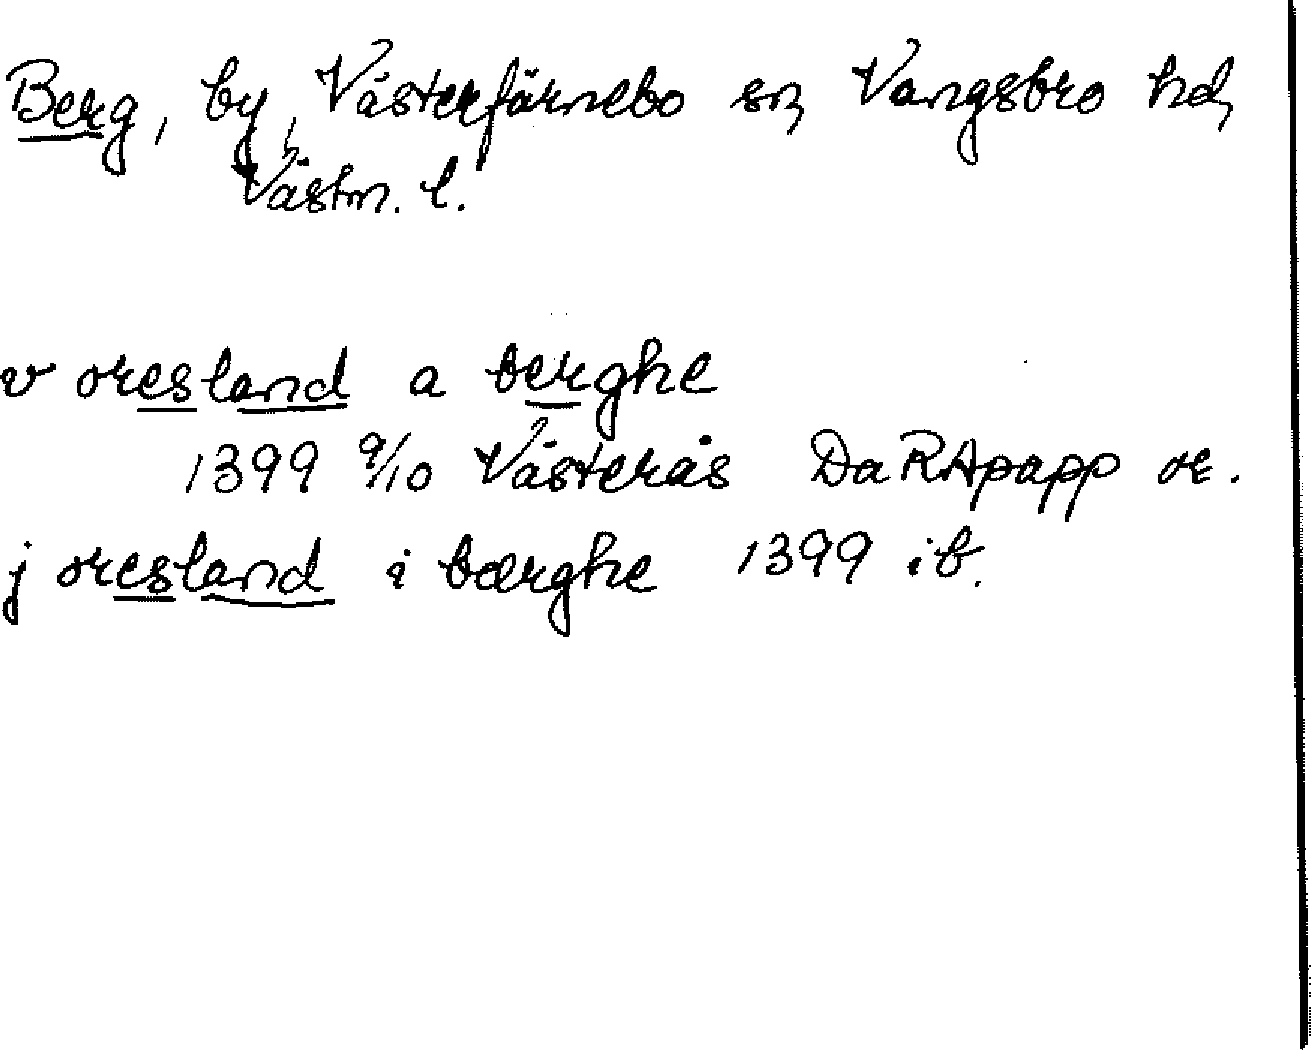 Berg, by, Västerfärnebo sn, Vangsbro hd,
Västm. l.
v oresland a berghe
1399 9/10 Västerås DaRApapp or.
j oresland i bærghe 1399 ib.